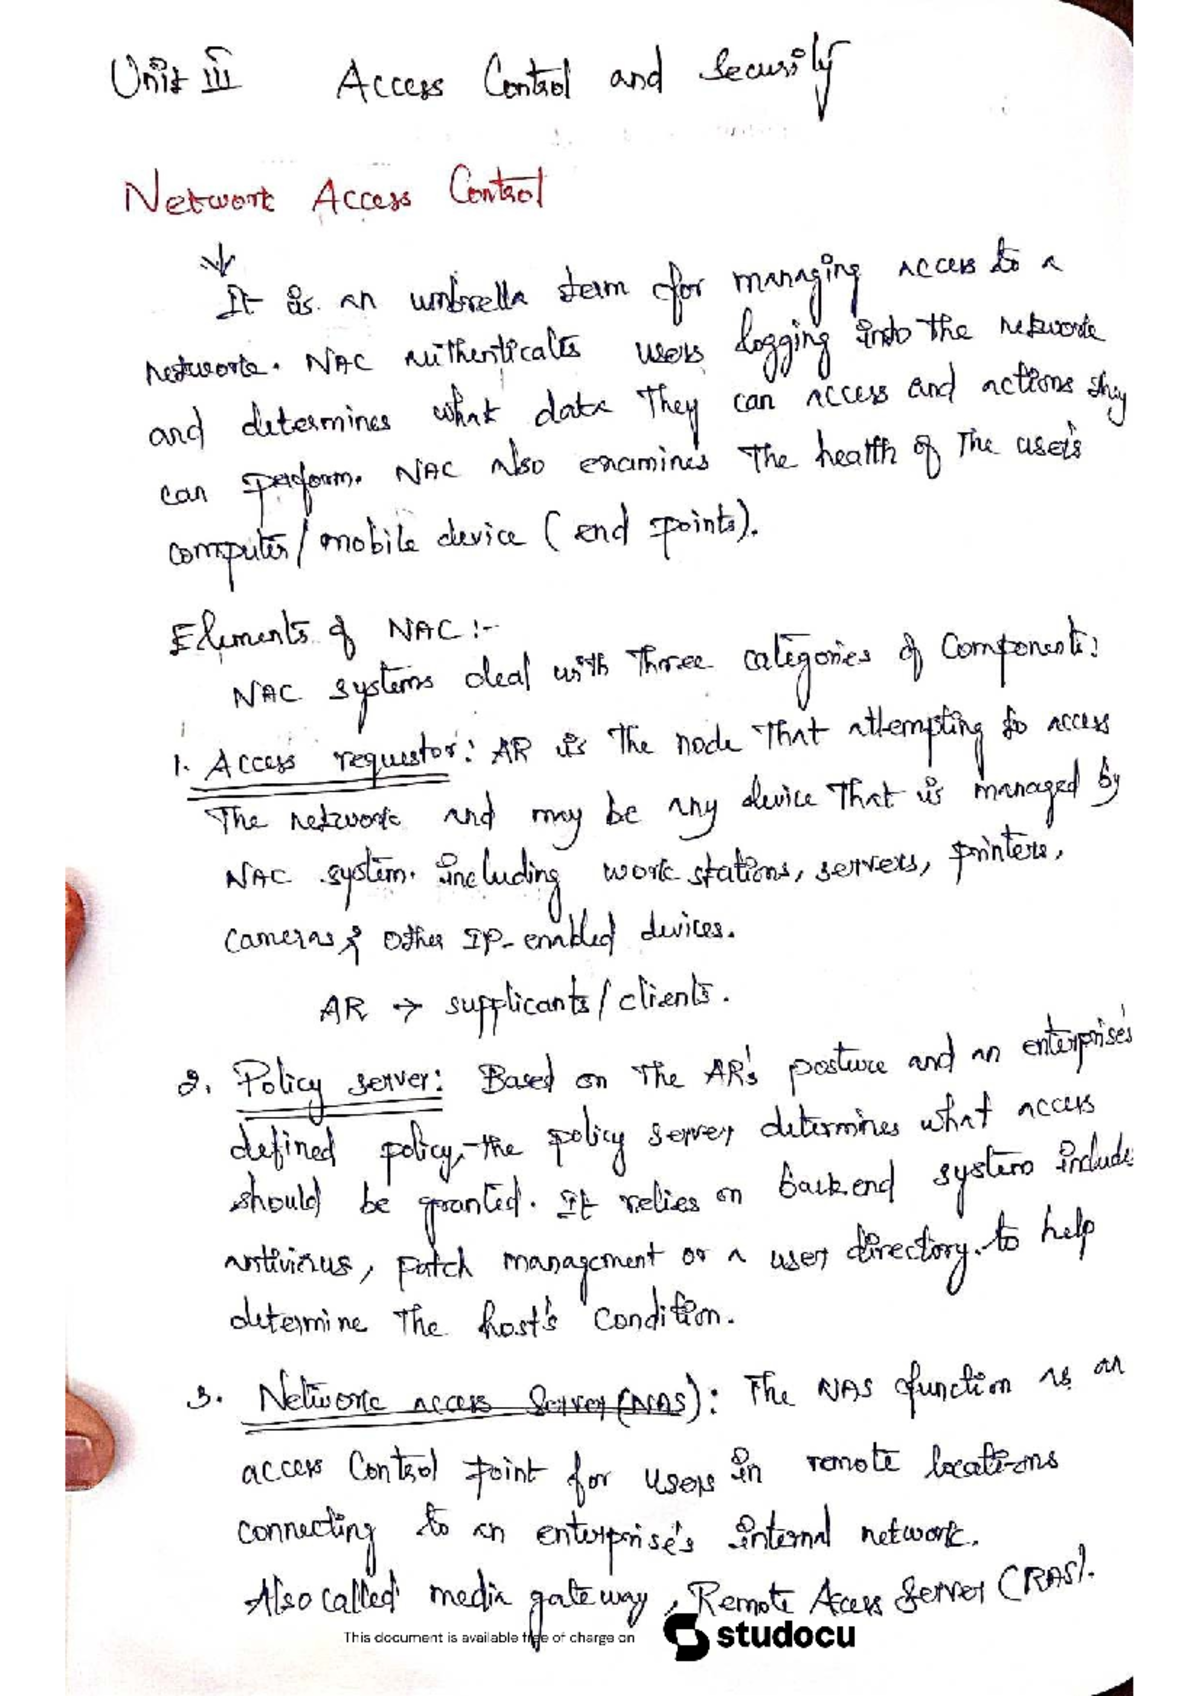 Unit III Access Control and Security
Network Access Control
It is an umbrella term for managing access to a
network. NAC authenticates users logging into the network
and determines what data they can access and actions they
can perform. NAC also examines the health of the user's
computer/mobile device (end points).
Elements of NAC :-
NAC systems deal with three categories of components:
1. Access requestor: AR is the node that attempting to access
the network and may be any device that is managed by
NAC system. including work stations, servers, printers,
cameras & other IP-enabled devices.
AR → supplicants/clients.
2. Policy server: Based on the AR's posture and an enterprise's
defined policy, the policy server determines what access
should be granted. It relies on backend system include
antivirus, patch management or a user directory. to help
determine the host's condition.
3. Network access Server (NAS): The NAS function is an
access control point for users in remote locations
connecting to an enterprise's internal network.
Also called media gateway, Remote Access Server (RAS).
This document is available free of charge on studocu